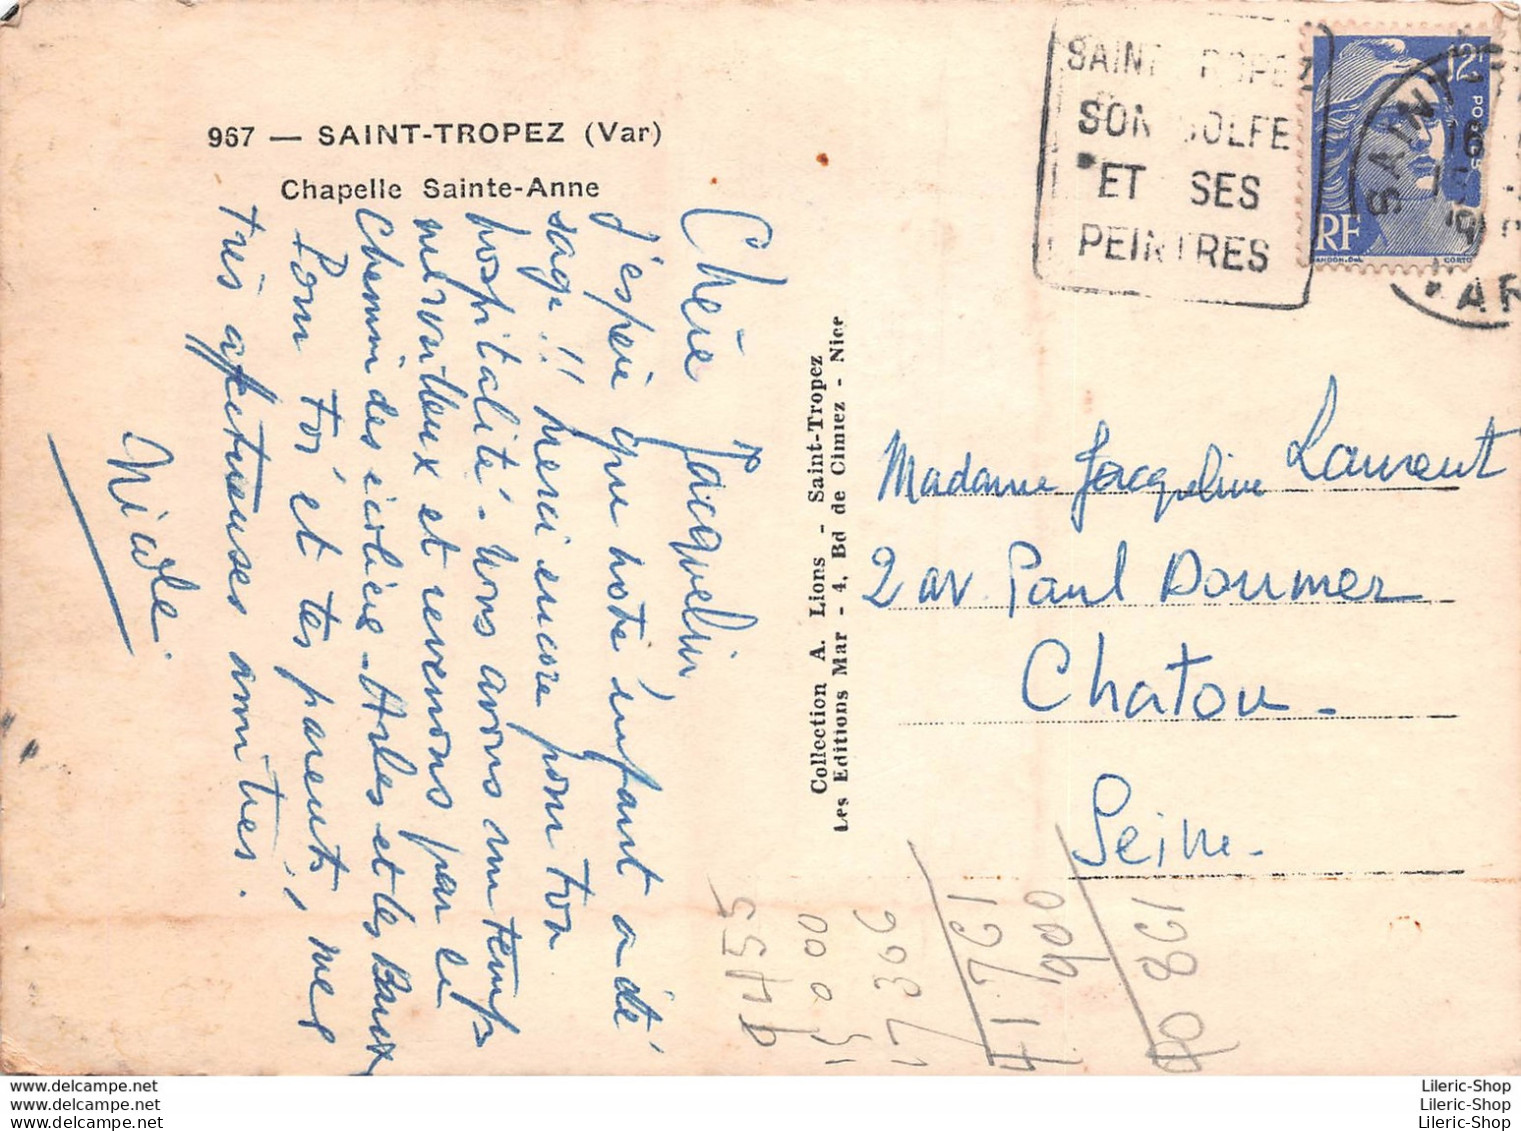 967 — SAINT-TROPEZ (Var)
Chapelle Sainte-Anne
SAINT ROPEZ
SON GOLFE
ET SES
PEINTRES
12F
POSTES
RF
GANDON.Del.
CORTO
SAINT
16
VAR
Chère Jacqueline,
J'espère que notre enfant a été
sage !! Merci encore pour ton
hospitalité - Nous avons un temps
merveilleux et revenons par le
Chemin des écoliers - Arles et les Baux
Pour toi et tes parents, mes
très affectueuses amitiés.
Nicole
Collection A. Lions - Saint-Tropez
Les Editions Mar - 4, Bd de Cimiez - Nice
Madame Jacqueline Laurent
2 av. Paul Doumer
Chatou -
Seine -
5 000
17 306
41 761
900
40 861
delcampe.net
delcampe.net
delcampe.net
Lileric-Shop
Lileric-Shop
Lileric-Shop